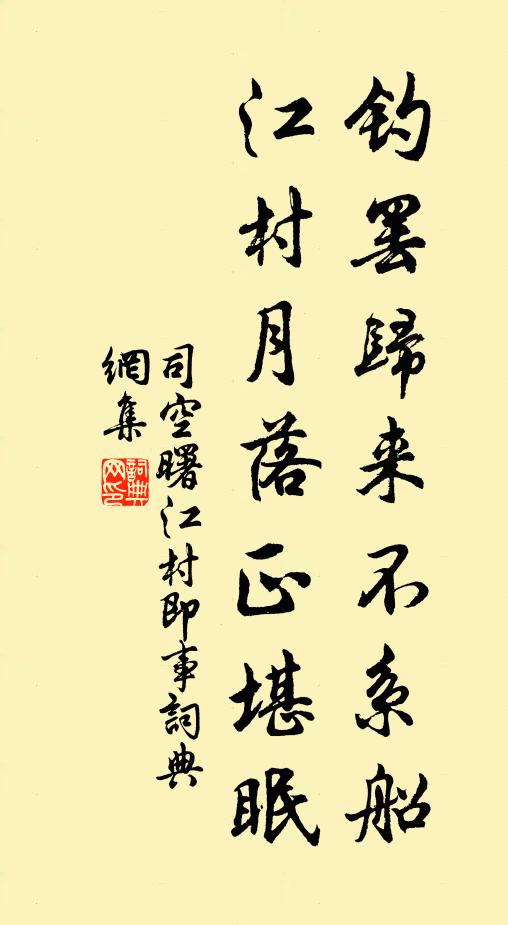 钓罢歸来不系船
江村月落正堪眠
司空曙江村即事詞典
網集
詞典
网印